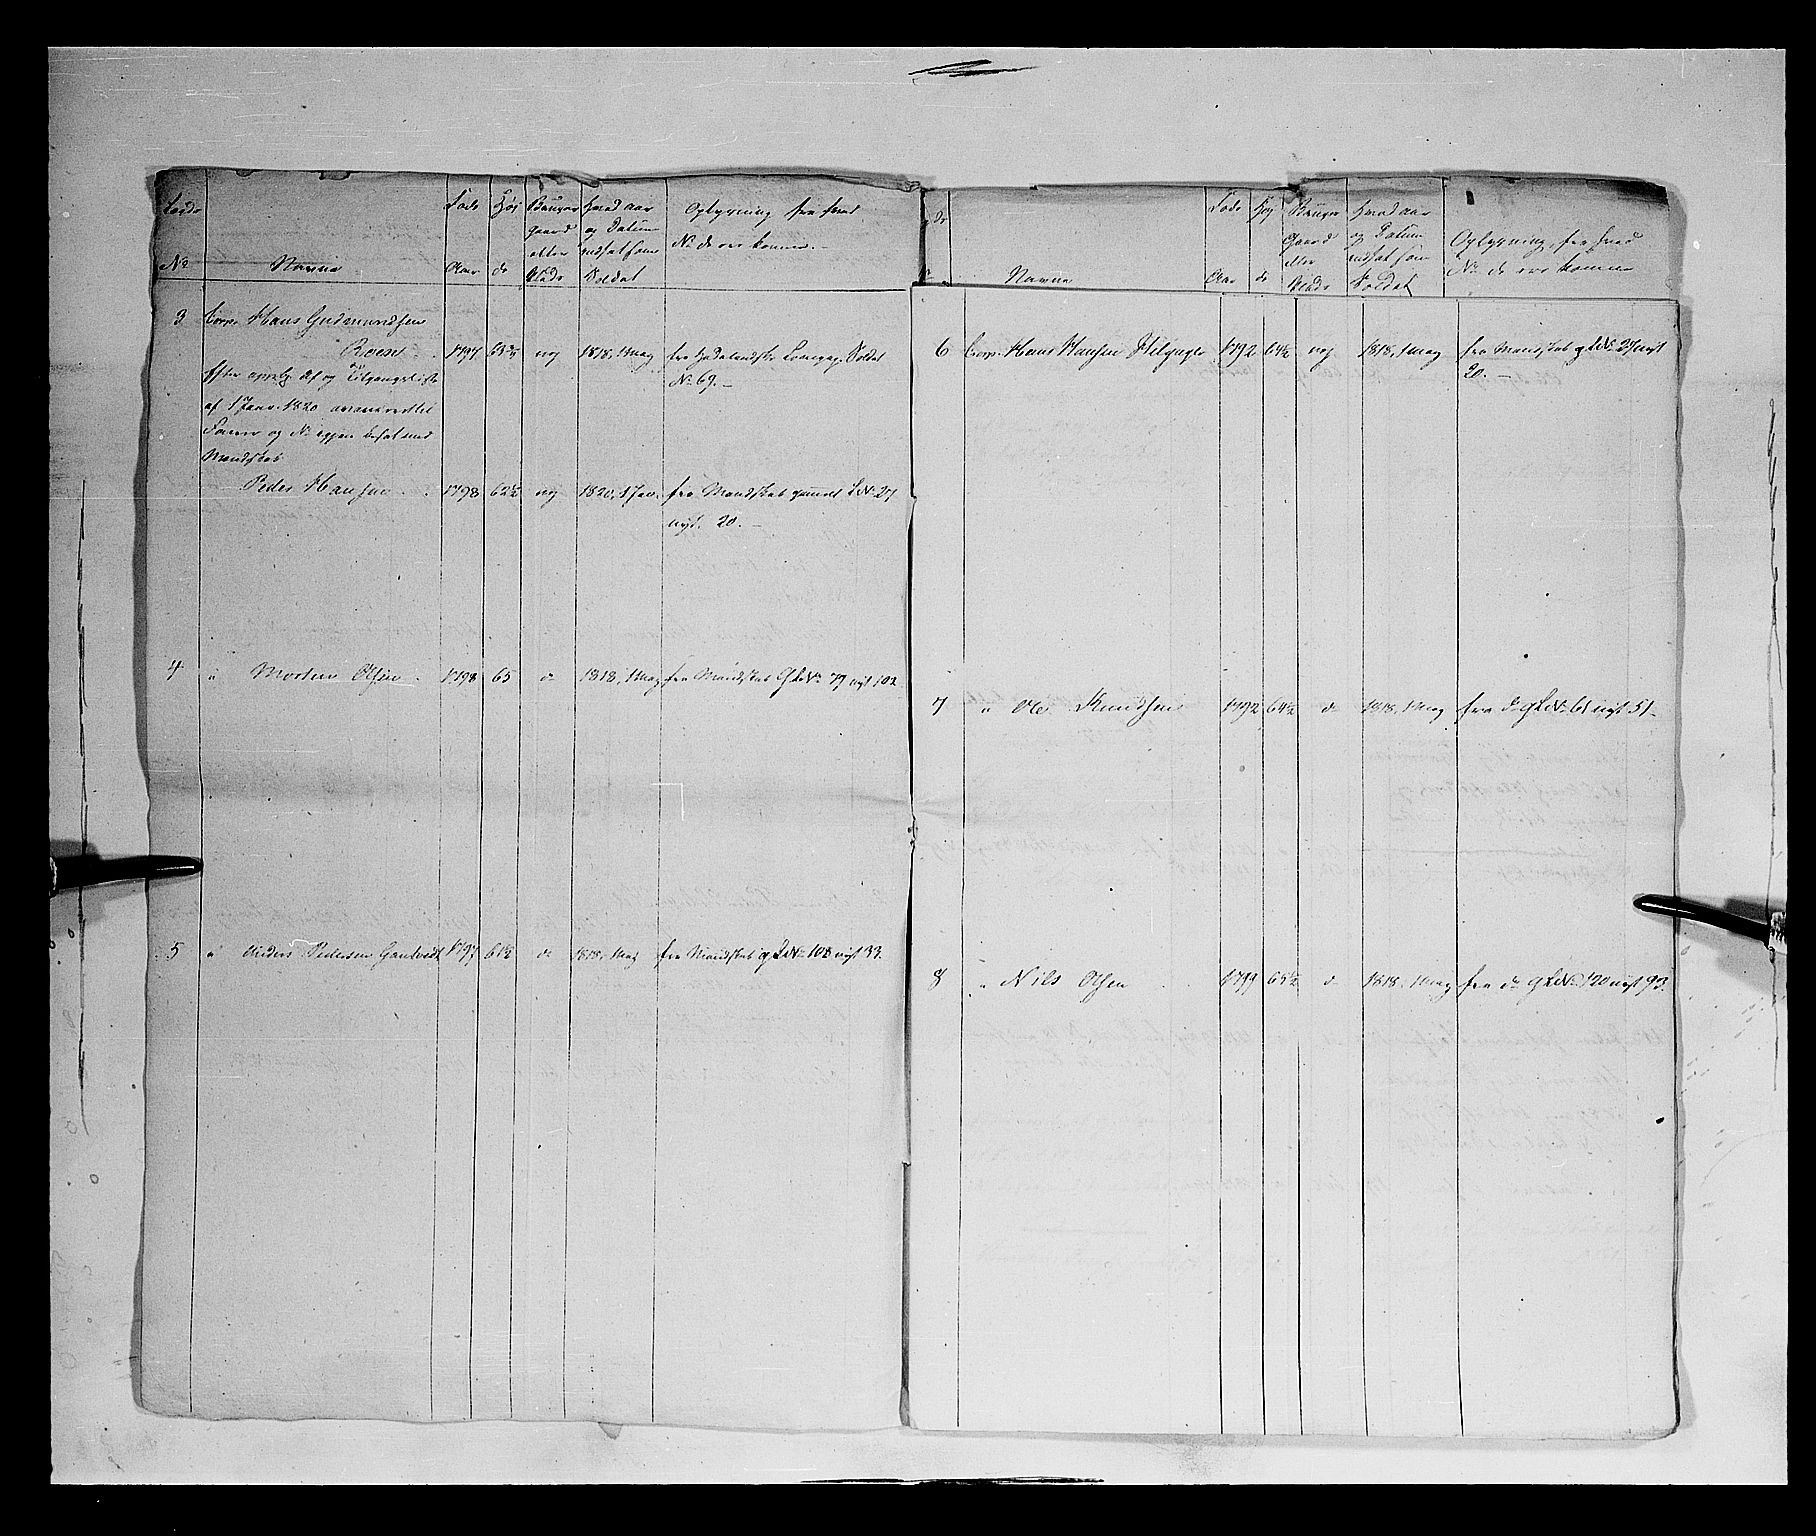 Løbe Føds Høi Bruger Hvad aar Oplysning fra hvad
gaard og Datum No de ere kommen.
eller indsat som
No Navne Aar de Plads Soldat
3 Corp. Hans Gudmundsen
Roen 1797 63¾ nej 1818, 1 May fra Hadelandske Compag. Soldat
No 69.
Efter af og Tilgangsliste
af 1 Janv. 1820 avanceret til
Fourer og No igjen besat med
Mandskab
Peder Hansen 1798 62½ nej 1820, 1 Jan. fra Mandskab gammel L No 27
nyt. 20.
4 " Morten Olsen 1798 65 do 1818, 1 May fra Mandskab G L No 79 nyt 102
5 " Anders Pedersen 1797 61½ do 1818, 1 May fra Mandskab g L No 108 nyt 33.
de Føds Høi Bruger Hvad aar
Gaard og Datum Oplysning, fra hvad
eller indsat som No de ere kommen
Navne Aar de Plads Soldat
6 Corp. Hans Hansen 1792 64½ nej 1818, 1 May fra Mandskab g L No 27 nyt
20.
7 " Ole Knudsen 1792 64½ do 1818, 1 May fra do g L No 61 nyt 51
8 " Nils Olsen 1799 65½ do 1818, 1 May fra do g L No 120 nyt 93.